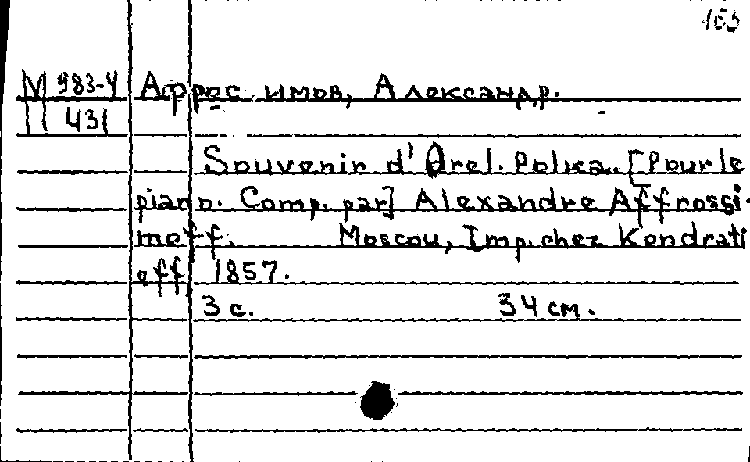 163
М 983-4 Афросимов, Александр.
11 431
Souvenir d'Orel. Polka. [Pour le
piano. Comp. par] Alexandre Affrossi-
moff. Moscou, Imp. chez Kondrati
eff 1857.
3 с. 34 см.